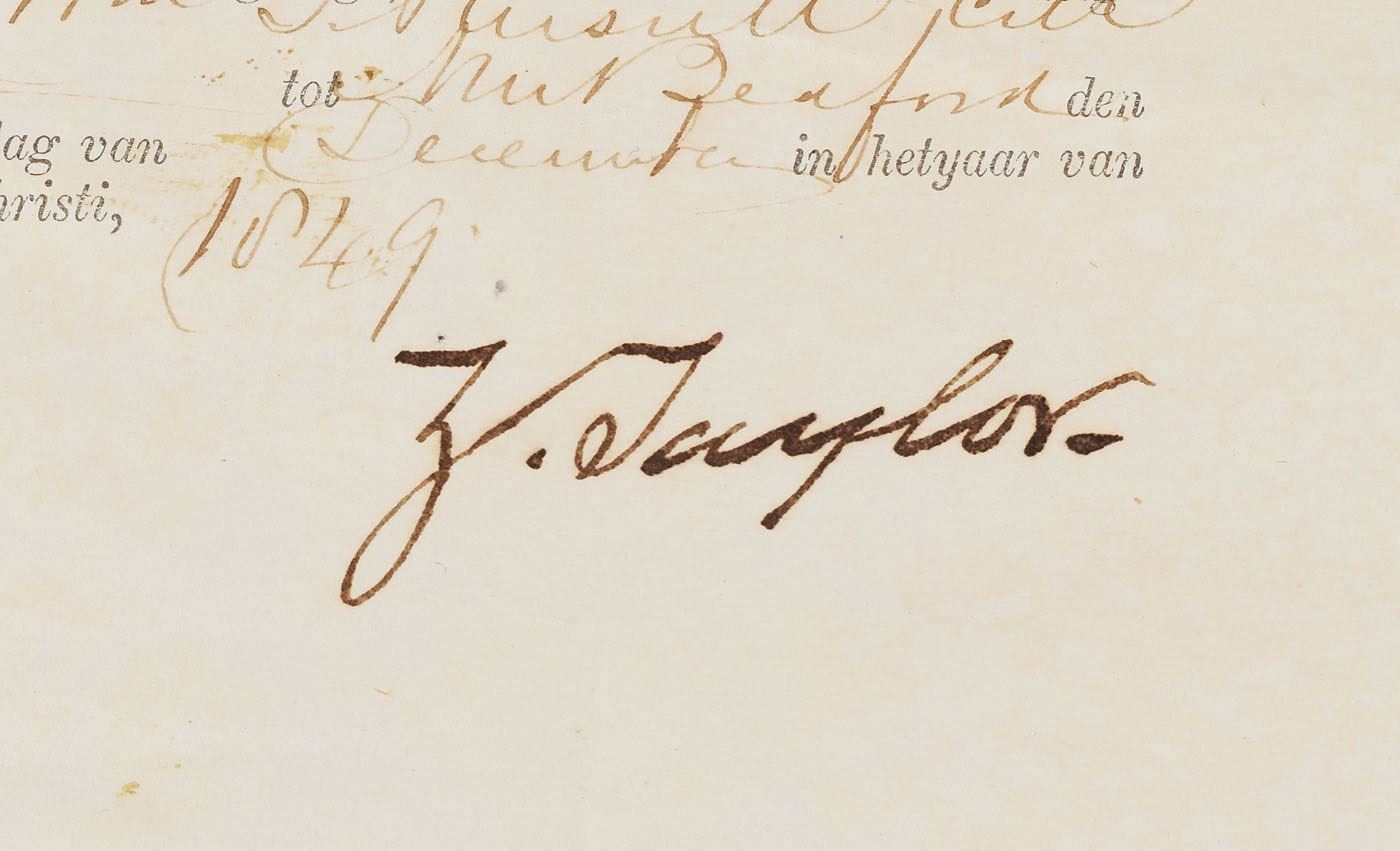 tot New Bedford den
dag van December in hetyaar van
hristi, 1849
Z. Taylor.